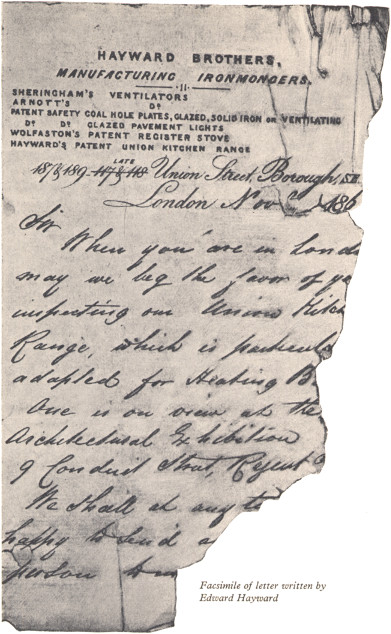 HAYWARD BROTHERS,
MANUFACTURING IRONMONGERS.
SHERINGHAM'S VENTILATORS
ARNOTT'S Dº
PATENT SAFETY COAL HOLE PLATES, GLAZED, SOLID IRON OR VENTILATING
Dº GLAZED PAVEMENT LIGHTS
WOLFASTON'S PATENT REGISTER STOVE
HAYWARD'S PATENT UNION KITCHEN RANGE
LATE
187 & 189 117 & 118 Union Street, Borough, SE
London Nov 186
Sir
When you are in Lond
may we beg the favor of yo
inspecting our Union Kitch
Range, which is particul
adapted for Heating B
One is on view at the
Architectural Exhibition
9 Conduit Street, Regent
We shall at any ti
happy to send a
person to
Facsimile of letter written by
Edward Hayward